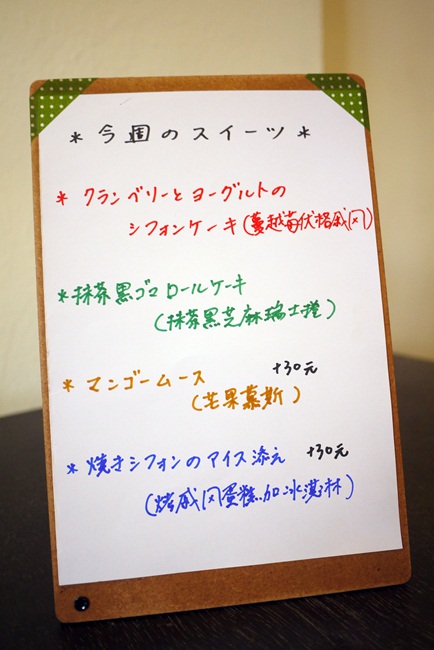 * 今週のスイーツ *
* クランベリーとヨーグルトの
シフォンケーキ(蔓越莓优格戚风)
*抹茶黒ゴマロールケーキ
(抹茶黑芝麻瑞士捲)
* マンゴームース +30元
(芒果慕斯)
* 焼きシフォンのアイス添え +30元
(烤戚风蛋糕加冰淇淋)